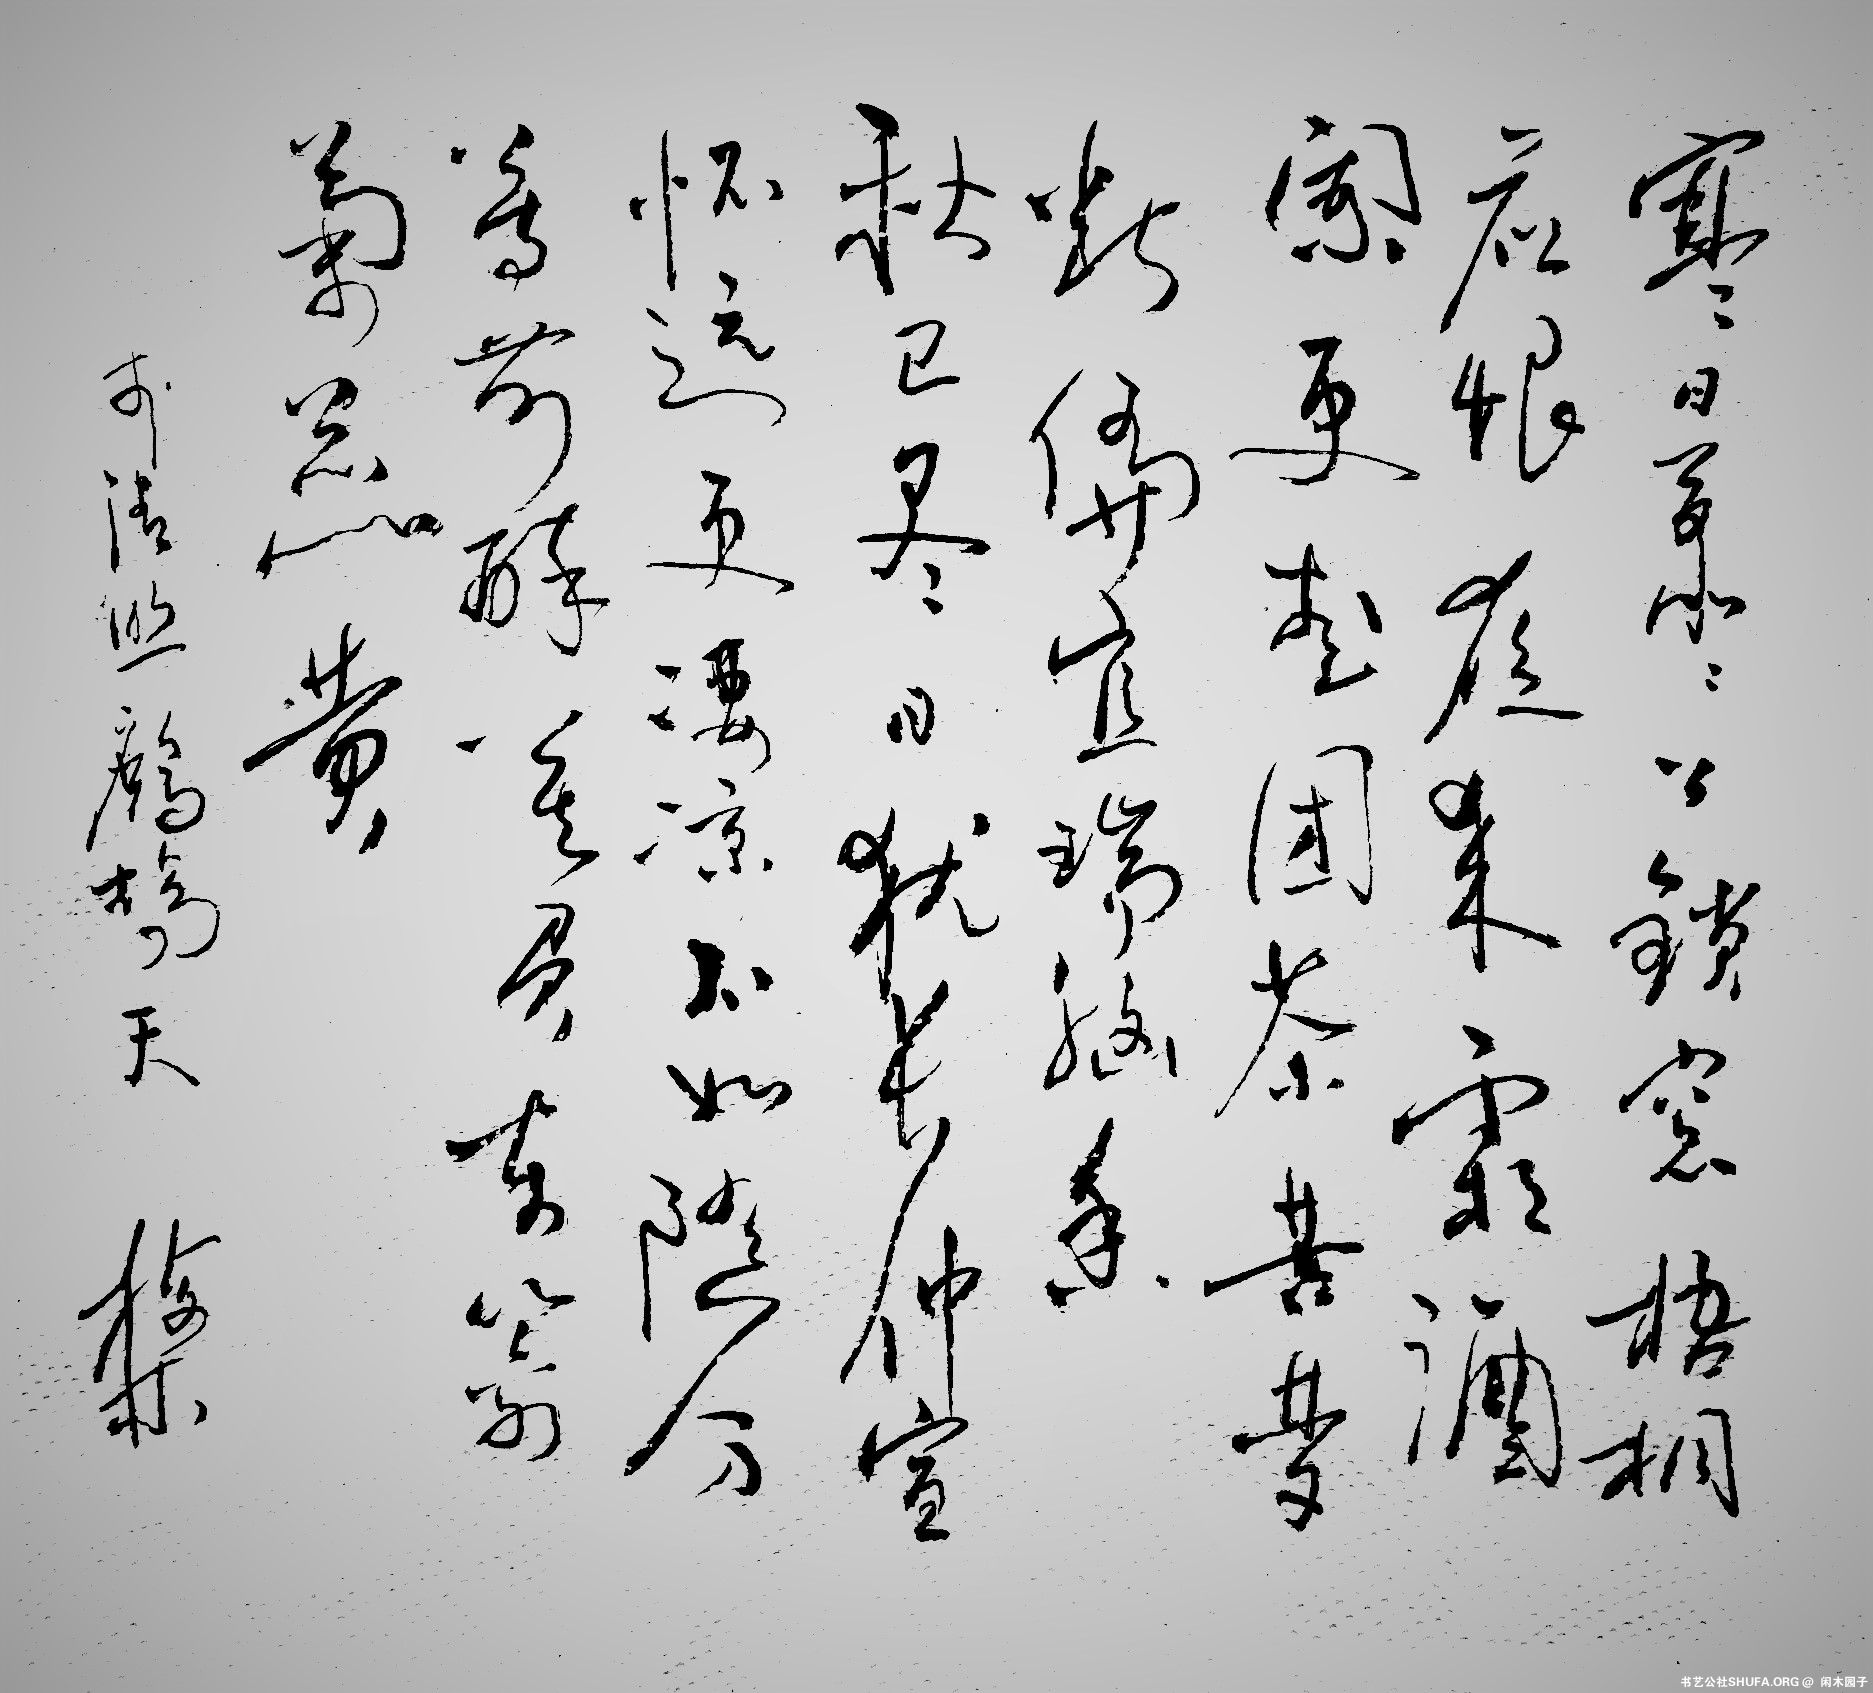 寒日萧萧上鎖窗梧桐
应恨夜来霜酒
阑更喜团茶苦梦
断偏宜瑞脑香
秋已尽日犹长仲宣
怀远更凄凉不如随分
尊前醉莫负东篱
菊蕊黄
清照鹧鸪天
书艺公社SHUFA.ORG @ 闲木园子